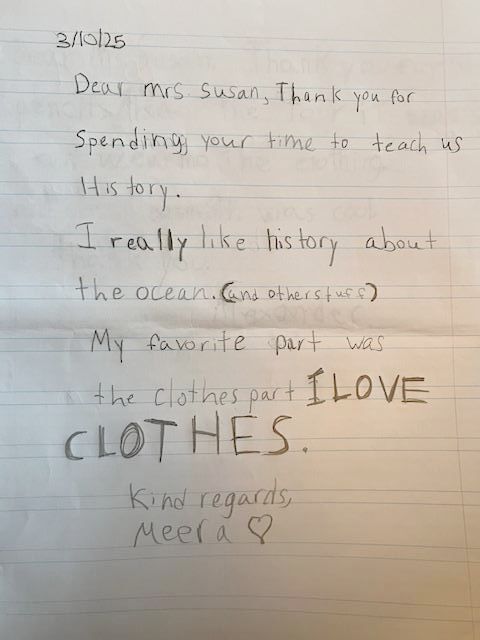 3/10/25
Dear mrs susan, Thank you for
Spending your time to teach us
History.
I really like history about
the ocean. (and other stuff)
My favorite part was
the clothes part I LOVE
CLOTHES.
Kind regards,
Meera ♡